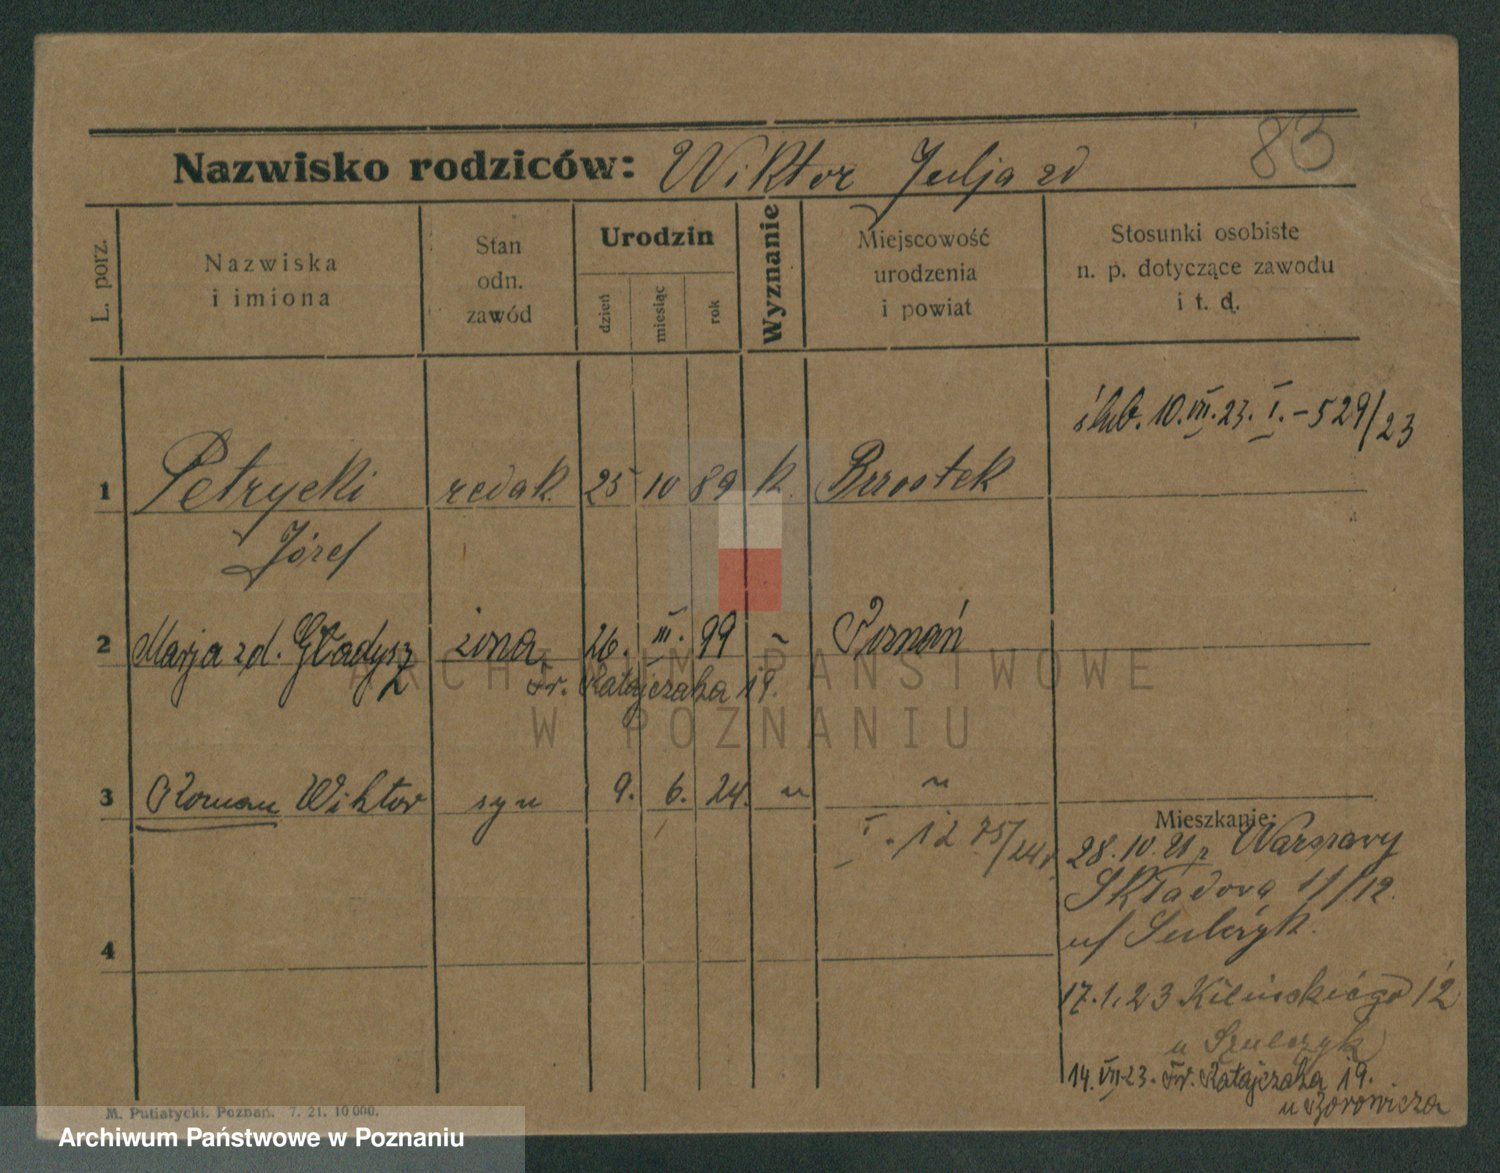 83
Nazwisko rodziców: Wiktor Julja zd
L. porz.
Nazwiska
i imiona
Stan
odn.
zawód
Urodzin
dzień
miesiąc
rok
Wyznanie
Miejscowość
urodzenia
i powiat
Stosunki osobiste
n. p. dotyczące zawodu
i t. d.
ślub. 10.VII.23. I.-529/23
1 Petrycki redak. 25 10 89 k. Brzostek
Józef
2 Marja zd. Gładysz żona 26. III. 99 ~ Poznań
Fr. Ratajczaka 19.
3 Roman Wiktor syn 9. 6. 24. " "
I. 1275/24
4
Mieszkanie:
28.10.21 z Warszawy
Składowa 11/12.
17.1.23 Kilińskiego 12
u Szulczyk
14.VII.23. Fr. Ratajczaka 19.
u Borowicza
M. Putiatycki. Poznań. 7. 21. 10 000.
ARCHIWUM PAŃSTWOWE
W POZNANIU
Archiwum Państwowe w Poznaniu